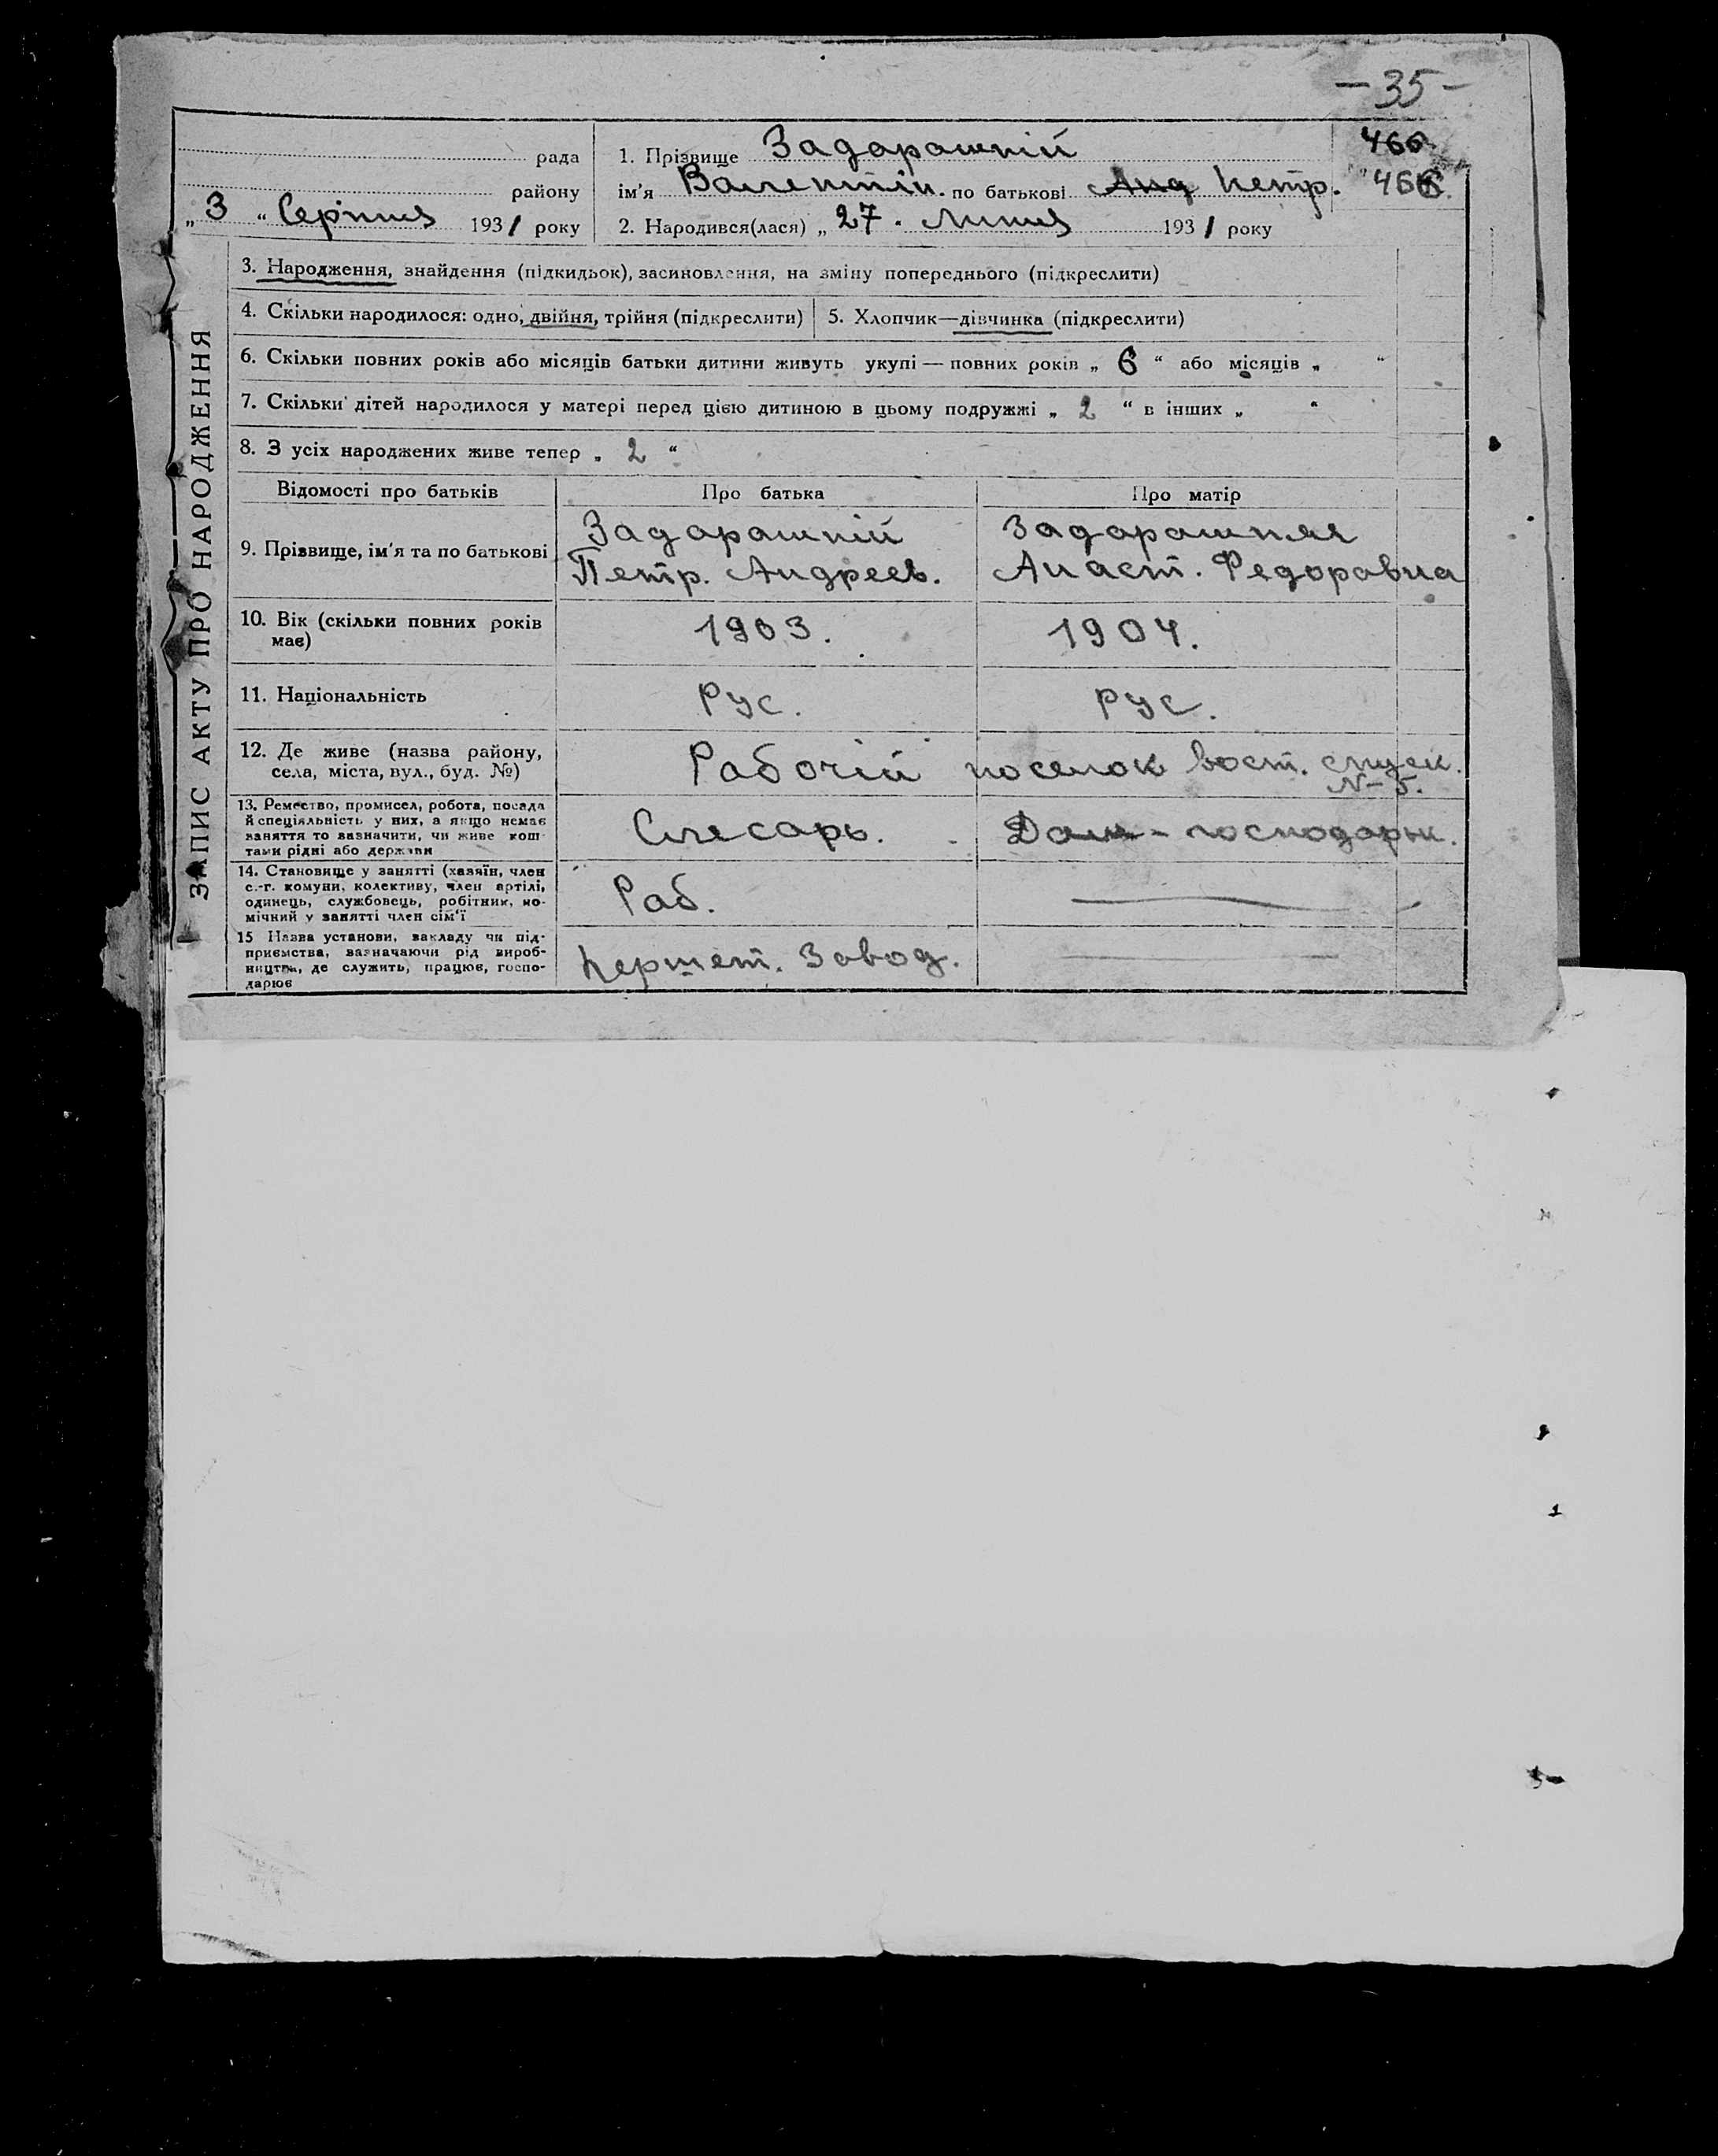 — 35 —
рада
району
„ 3 “ Серпня 1931 року
1. Прізвище Задарашній
ім'я Валентін. по батькові Анд Петр.
466
466.
2. Народився(лася) „ 27. Липня 1931 року
ЗАПИС АКТУ ПРО НАРОДЖЕННЯ
3. Народження, знайдення (підкидьок), засиновлення, на зміну попереднього (підкреслити)
4. Скільки народилося: одно, двійня, трійня (підкреслити)
5. Хлопчик—дівчинка (підкреслити)
6. Скільки повних років або місяців батьки дитини живуть укупі — повних років „ 6 “ або місяців „ “
7. Скільки дітей народилося у матері перед цією дитиною в цьому подружжі „ 2 “ в інших „ “
8. З усіх народжених живе тепер „ 2 “
Відомості про батьків
Про батька
Про матір
9. Прізвище, ім'я та по батькові
Задарашній
Петр. Андреев.
Задарашняя
Анаст. Федоравна
10. Вік (скільки повних років
має)
1903.
1904.
11. Національність
Рус.
рус.
12. Де живе (назва району,
села, міста, вул., буд. №)
Рабочій поселок Вост.
N- 5.
13. Ремество, промисел, робота, посада
й спеціяльність у них, а якщо немає
заняття то зазначити, чи живе кош-
тами рідні або держави
Слесарь.
Дом - господарьк.
14. Становище у занятті (хазяїн, член
с.-г. комуни, колективу, член артілі,
одинець, службовець, робітник, по-
мічний у занятті член сім'ї
Раб.
15 Назва установи, закладу чи під-
приємства, зазначаючи рід вироб-
ництва, де служить, працює, госпо-
дарює
Завод.